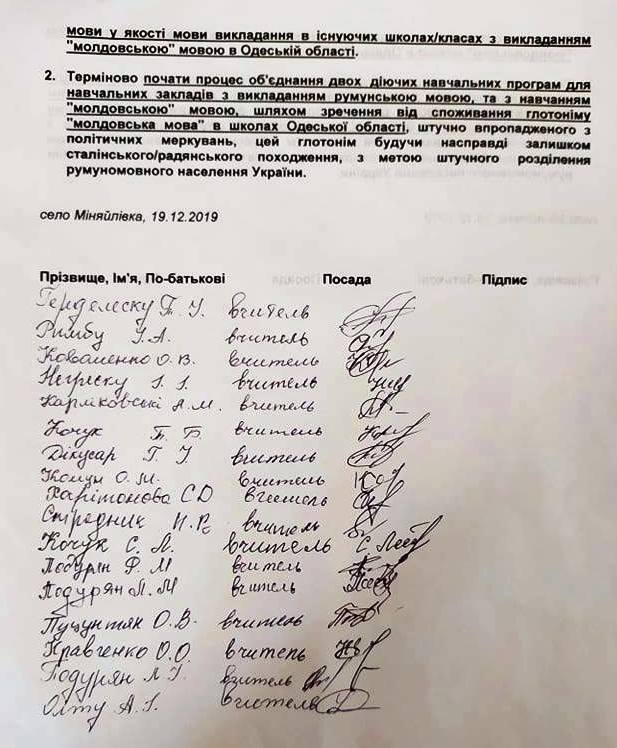 мови у якості мови викладання в існуючих школах/класах з викладанням
"молдовською" мовою в Одеській області.
2. Терміново почати процес об'єднання двох діючих навчальних програм для
навчальних закладів з викладанням румунською мовою, та з навчанням
"молдовською" мовою, шляхом зречення від споживання глотоніму
"молдовська мова" в школах Одеської області, штучно впропадженого з
політичних меркувань, цей глотонім будучи насправді залишком
сталінського/радянського походження, з метою штучного розділення
румуномовного населення України.
село Міняйлівка, 19.12.2019
Прізвище, Ім'я, По-батькові Посада Підпис
вчитель
Римбу І.А. вчитель
Коваленко О.В. вчитель
Негреску І.І. вчитель
Карліковські А.М. вчитель
Кочук Т.Б. вчитель
Дікусар Г.І. вчитель
О.М. вчитель
Харітонова С.D вчитель
вчитель
Кочук С.Л. вчитель
Подурян Ф.М вчитель
Подурян Л.М вчитель
Пуцунтян О.В. вчитель
Кравченко О.О. вчитель
Подурян Л.І. вчитель
Олту А.І. вчитель